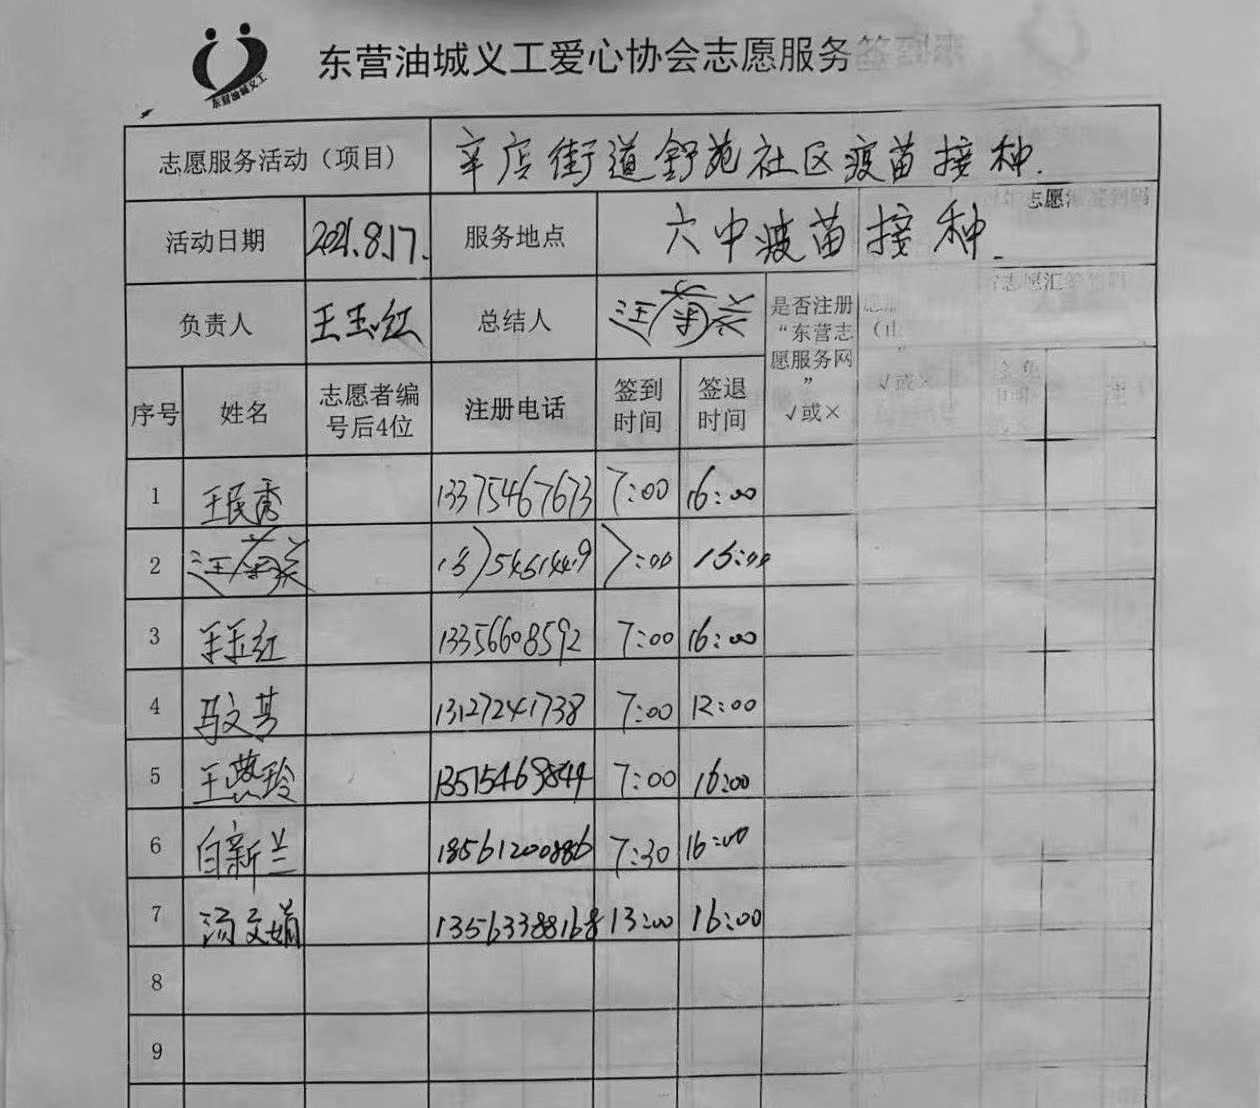 东营油城义工爱心协会志愿服务签到表
东营油城义工
志愿服务活动（项目） 辛店街道舒苑社区疫苗接种.
活动日期 2021.8.17. 服务地点 六中疫苗接种.
负责人 王玉红 总结人 汪菊兰
是否注册“东营志愿服务网” √或×
序号 姓名 志愿者编号后4位 注册电话 签到时间 签退时间
1 王民秀 13375467673 7:00 16:00
2 汪菊兰 7:00 16:00
3 王玉红 13356608592 7:00 16:00
4 马文芳 13127241738 7:00 12:00
5 王燕玲 13515469844 7:00 16:00
6 白新兰 18561200886 7:30 16:00
7 汤文娟 13563388168 13:00 16:00
8
9